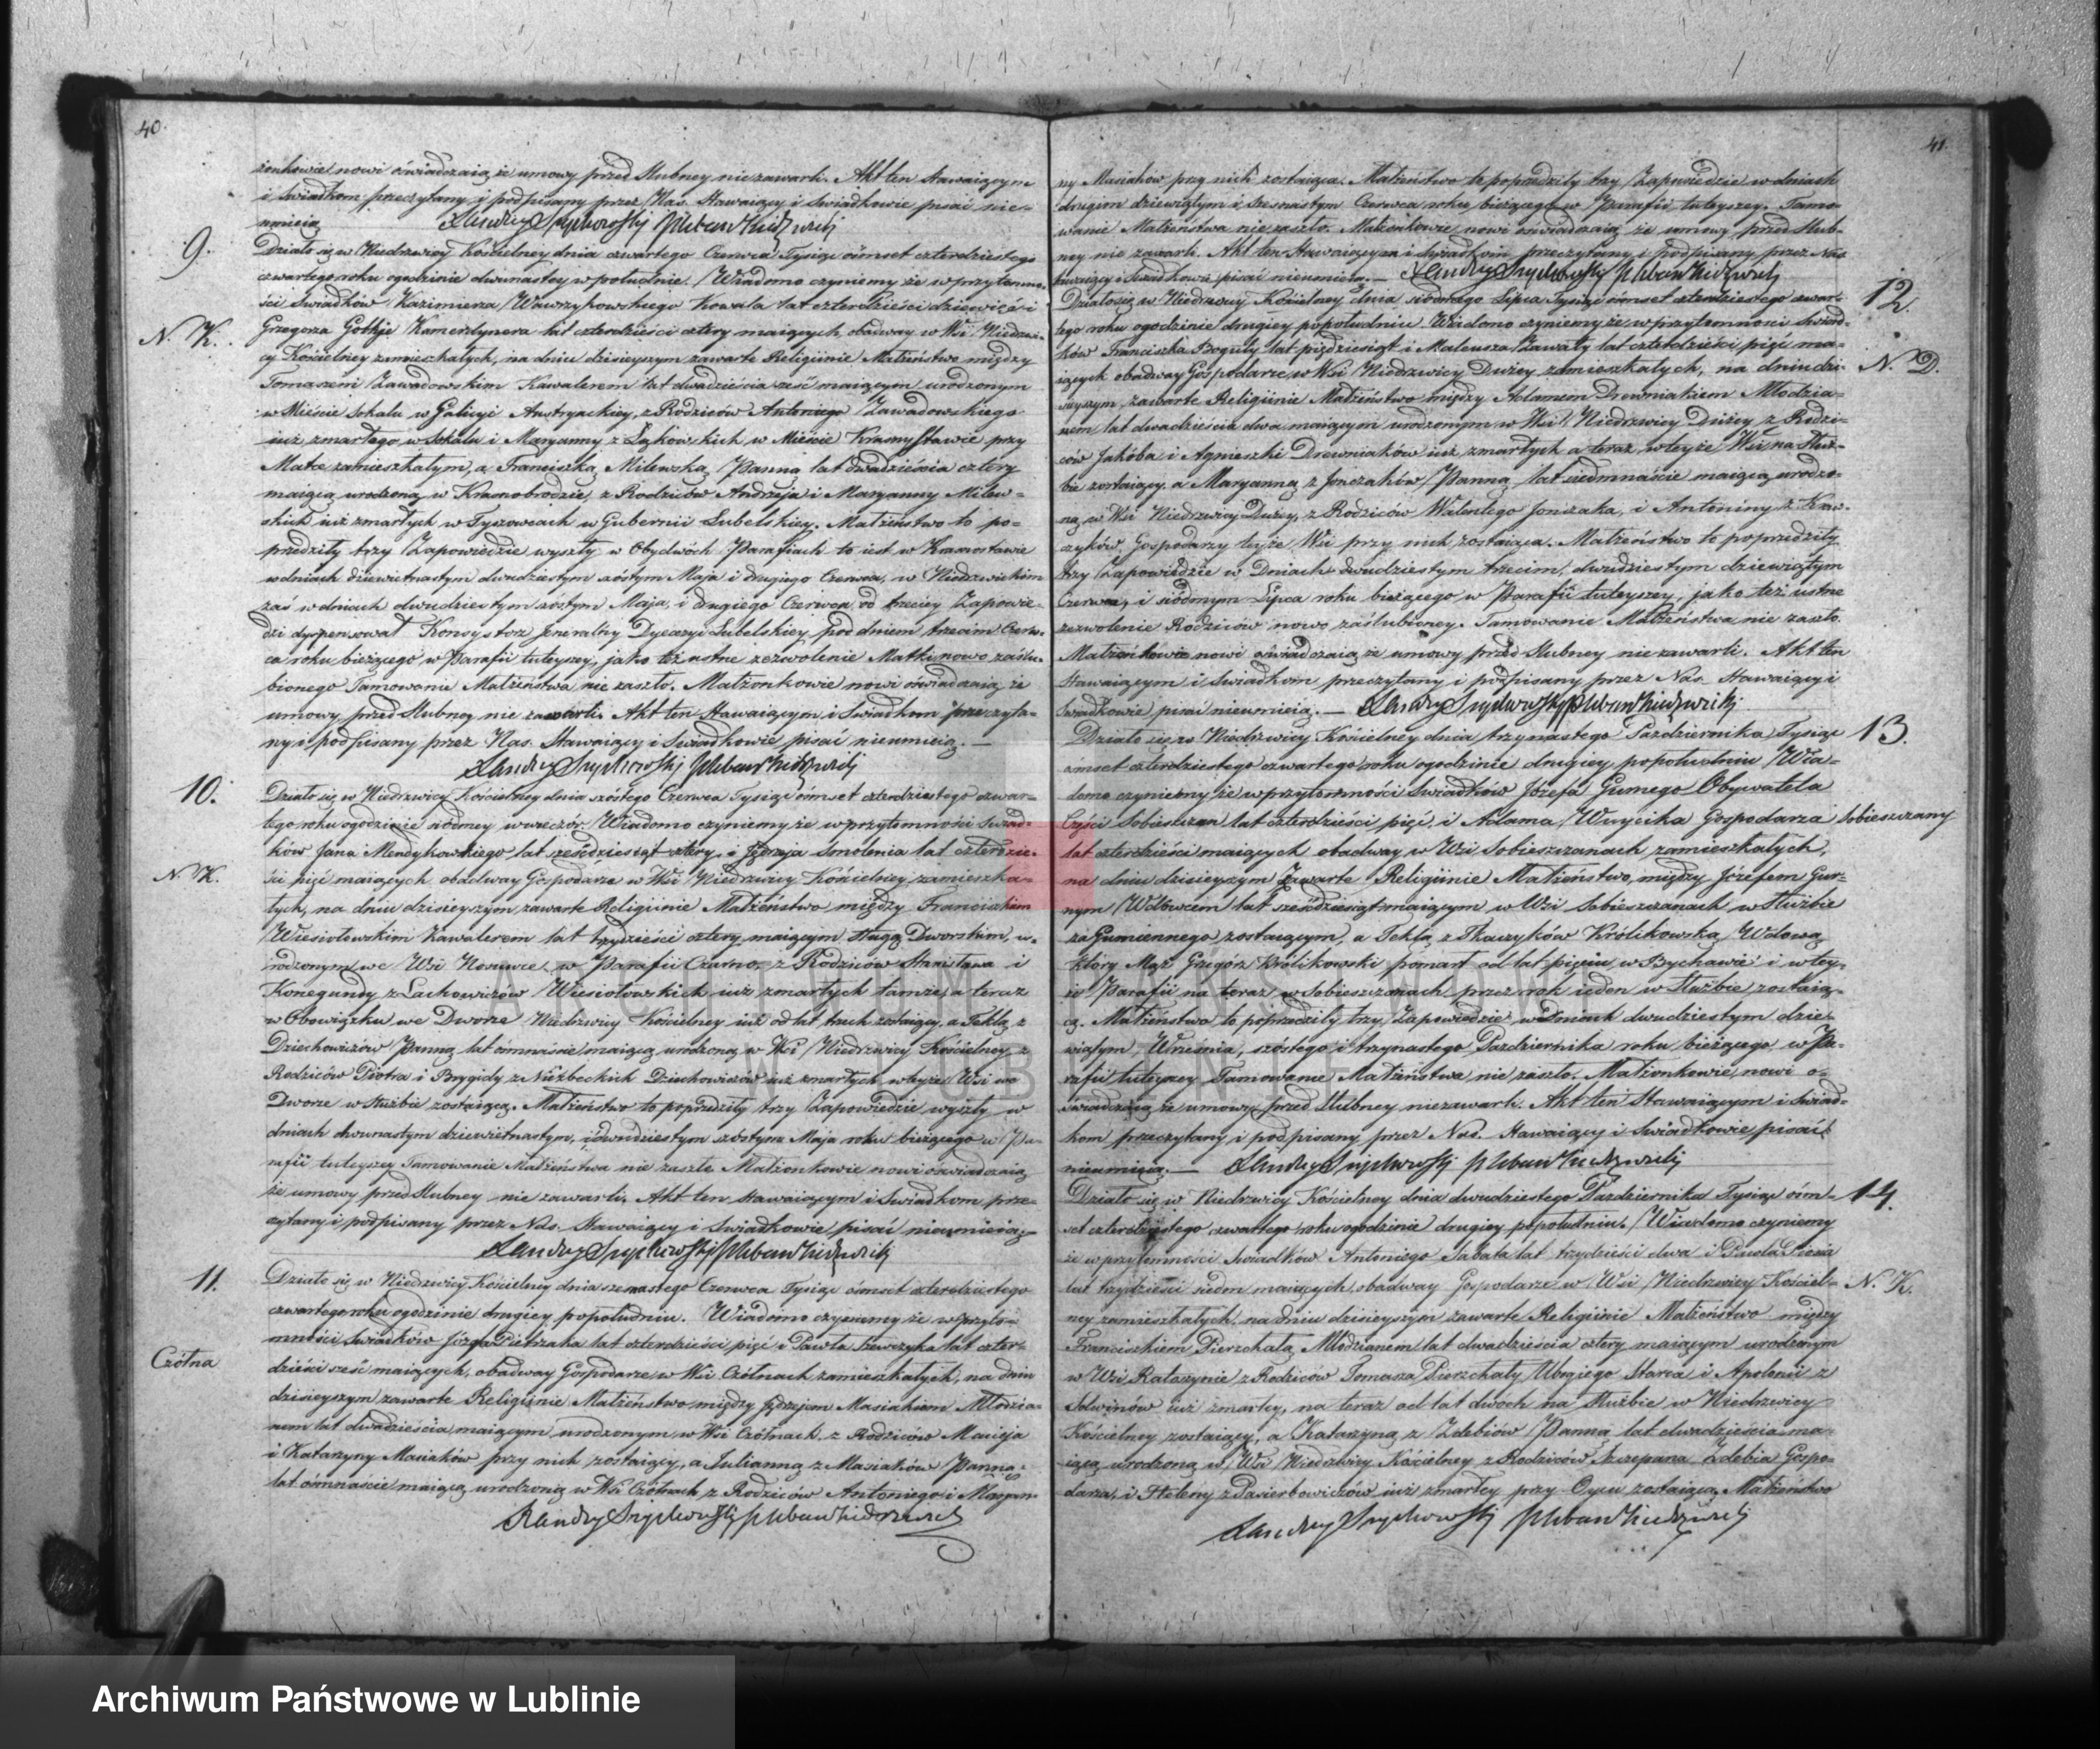 40.
żonkowie nowi oświadczaią że umowy przed Slubney nie zawarli. Akt ten Stawaiącym
i Swiadkom przeczytany i podpisany przez Nas. Stawaiący i Swiadkowie pisać nie-
umieią
9.
Działo się w Niedrzwicy Kościelney dnia czwartego Czerwca Tysiąc ośmset czterdziestego
czwartego roku ogodzinie dwunastey wpołudnie. Wiadomo czyniemy że wprzytomno-
ści Swiadków Kazimierza Wawrzykowskiego Kowala lat czterdzieści dziewięć i
N. K.
Grzegorza Kamerdynera lat czterdzieści cztery maiących, obadway w Wsi Niedrzwi-
cy Kościelney zamieszkałych, na dniu dzisieyszym zawarte Religiinie Małżeństwo między
Tomaszem Zawadowskim Kawalerem lat dwadzieścia sześć maiącym urodzonym
w Mieście Sokalu w Galicyi Austryackiey, z Rodziców Antoniego Zawadowskiego
iuż zmarłego w Sokalu i Maryanny z Łąkowskich w Mieście Krasnymstawie przy
Matce zamieszkałym, a Franciszką Milewską Panną lat dwadzieścia cztery
maiącą urodzoną w Krasnobrodzie z Rodziców Andrzeja i Maryanny Milew-
skich iuż zmarłych w Tyszowcach w Gubernii Lubelskiey. Małżeństwo to po-
przedziły trzy Zapowiedzie wyszły w Obydwóch Parafiach to iest w Krasnostawie
wdniach dziewietnastym dwudziestym szóstym Maja i drugiego Czerwca, w Niedrzwickim
zaś wdniach dwudziestym szóstym Maja, i drugiego Czerwca od trzeciey Zapowie-
dzi dyspensował Konsystorz Jeneralny Dyecezyi Lubelskiey pod dniem trzecim Czerw-
ca roku bieżącego w Parafii tuteyszey, jako też ustne zezwolenie Matki nowo zaślu-
bionego Tamowanie Małżeństwa nie zaszło. Małżonkowie nowi oświadczaią że
umowy przed Slubney nie zawarli. Akt ten Stawaiącym i Swiadkom przeczyta-
ny i podpisany przez Nas. Stawaiący i Swiadkowie pisać nieumieią. —
10.
Działo się w Niedrzwicy Kościelney dnia szóstego Czerwca Tysiąc ośmset czterdziestego czwar-
tego roku ogodzinie siódmey wwieczór. Wiadomo czyniemy że wprzytomności Swiad-
ków Jana Mendykowskiego lat sześćdziesiąt cztery, i Jędrzeja Smolenia lat czterdzie-
N. K.
ści pięć maiących obadway Gospodarze w Wsi Niedrzwicy Kościelney zamieszka-
łych, na dniu dzisieyszym zawarte Religiinie Małżeństwo między Franciszkiem
Wiesiołowskim Kawalerem lat trzydzieści cztery maiącym sługą Dworskim, u-
rodzonym we Wsi w Parafii z Rodziców Stanisława i
Konegundy z Lachowiczów Wiesiołowskich iuż zmarłych tamże, a teraz
w Obowiązku we Dworze Niedrzwicy Kościelney iuż od lat trzech zostaiący, a Teklą z
Dziechowiczów Panną lat ośmnaście maiącą urodzoną w Wsi Niedrzwicy Kościelney z
Rodziców Piotra i Brygidy z Dziechowiczów iuż zmarłych, wteyże Wsi we
Dworze w służbie zostaiącą. Małżeństwo to poprzedziły trzy Zapowiedzie wyszły w
dniach dwunastym dziewietnastym, i dwudziestym szóstym Maja roku bieżącego w Pa-
rafii tuteyszey Tamowanie Małżeństwa nie zaszło Małżonkowie nowi oświadczaią
że umowy przed Slubney nie zawarli. Akt ten Stawaiącym i Swiadkom prze-
czytany i podpisany przez Nas. Stawaiący i Swiadkowie pisać nieumieią.—
11.
Działo się w Niedrzwicy Kościelney dnia szesnastego Czerwca Tysiąc ośmset czterdziestego
czwartego roku ogodzinie drugiey popołudniu. Wiadomo czyniemy że wprzyto-
mności Swiadków Józefa Pietrzaka lat czterdzieści pięć i Pawła Szewczyka lat czter-
Czółna
dzieści sześć maiących, obadway Gospodarze w Wsi Czółnach zamieszkałych, na dniu
dzisieyszym zawarte Religiinie Małżeństwo między Jędrzejem Masiakiem Młodzia-
nem lat dwadzieścia maiącym urodzonym w Wsi Czółnach z Rodziców Macieja
i Katarzyny Masiaków przy nich zostaiący, a Julianną z Masiaków Panną
lat ośmnaście maiącą urodzoną w Wsi Czółnach z Rodziców Antoniego i
41.
ny Masiaków przy nich zostaiąca. Małżeństwo to poprzedziły trzy Zapowiedzie w dniach
drugim dziewiątym i szesnastym Czerwca roku bieżącego w Parafii tuteyszey. Tamo-
wanie Małżeństwa nie zaszło. Małżonkowie nowi oświadczaią że umowy przed Slub-
ney nie zawarli. Akt ten Stawaiącym i Swiadkom przeczytany i podpisany przez Nas
Stawaiący i Swiadkowie pisać nieumieią. —
12.
Działo się w Niedrzwicy Kościelney dnia siódmego Lipca Tysiąc ośmset czterdziestego czwar-
tego roku ogodzinie drugiey popołudniu. Wiadomo czyniemy że wprzytomności Swiad-
ków Franciszka Boguty lat pięćdziesiąt i Mateusza Zawały lat czterdzieści pięć ma-
N. D.
iących obadway Gospodarze w Wsi Niedrzwicy Dużey zamieszkałych, na dniu dzi-
sieyszym, zawarte Religiinie Małżeństwo między Adamem Drewniakiem Młodzia-
nem lat dwadzieścia dwa maiącym urodzonym w Wsi Niedrzwicy Dużey z Rodzi-
ców Jakóba i Agnieszki Drewniaków iuż zmarłych a teraz wteyże Wsi na służ-
bie zostaiący, a Maryanną z Jonczaków Panną lat siedmnaście maiącą urodzo-
ną w Wsi Niedrzwicy Dużey, z Rodziców Walentego Jonczaka, i Antoniny z Kraw-
czyków Gospodarzy teyże Wsi przy nich zostaiąca. Małżeństwo to poprzedziły
trzy Zapowiedzie w Dniach dwudziestym trzecim, dwudziestym dziewiątym
Czerwca, i siódmym Lipca roku bieżącego w Parafii tuteyszey, jako też ustne
zezwolenie Rodziców nowo zaślubioney. Tamowanie Małżeństwa nie zaszło.
Małżonkowie nowi oświadczaią że umowy przed Slubney nie zawarli. Akt ten
Stawaiącym i Swiadkom przeczytany i podpisany przez Nas. Stawaiący i
Swiadkowie pisać nieumieią. —
13.
Działo się w Niedrzwicy Kościelney dnia trzynastego Pazdziernika Tysiąc
ośmset czterdziestego czwartego roku ogodzinie drugiey popołudniu Wia-
domo czyniemy że wprzytomności Swiadków Józefa Obywatela
Sobieszczany
Części Sobieszczan lat czterdzieści pięć, i Adama Wuycika Gospodarza
lat czterdzieści maiących obadway w Wsi Sobieszczanach zamieszkałych,
na dniu dzisieyszym Zawarte Religiinie Małżeństwo, między Józefem Gur-
nym Wdowcem lat sześćdziesiąt maiącym w Wsi Sobieszczanach w służbie
za Gumiennego zostaiącym, a Teklą z Tkaczyków Królikowską Wdową
który Mąż Grzegórz Królikowski pomarł od lat pięciu w Bychawie i wtey-
że Parafii na teraz w Sobieszczanach przez rok ieden w służbie zostaią-
cą. Małżeństwo to poprzedziły trzy Zapowiedzie w Dniach dwudziestym dzie-
wiątym Września, szóstego i trzynastego Pazdziernika roku bieżącego w Pa-
rafii tuteyszey Tamowanie Małżeństwa nie zaszło. Małżonkowie, nowi o-
świadczaią że umowy przed Slubney niezawarli. Akt ten Stawaiącym i Swiad-
kom przeczytany i podpisany przez Nas. Stawaiący i Swiadkowie pisać
nieumieią. —
14.
Działo się w Niedrzwicy Kościelney dnia dwudziestego Pazdziernika Tysiąc ośm-
set czterdziestego czwartego roku ogodzinie drugiey popołudniu. Wiadomo czyniemy
że wprzytomności Swiadków Antoniego Sabata lat trzydzieści dwa i Pawła
N. K.
lat trzydzieści siedm maiących, obadway Gospodarze w Wsi Niedrzwicy Kościel-
ney zamieszkałych, na dniu dzisieyszym zawarte Religiinie Małżeństwo między
Franciszkiem Pierzchałą Młodzianem lat dwadzieścia cztery maiącym urodzonym
w Wsi Ratoszynie z Rodziców Tomasza Pierzchały Ubogiego Starca i Apolonii z
iuż zmarłey, na teraz od lat dwóch na Służbie w Niedrzwicy
Kościelney zostaiący, a Katarzyną z Zdebiów Panną lat dwadzieścia ma-
iącą urodzoną w Wsi Niedrzwicy Kościelney z Rodziców Szczepana Zdebia Gospo-
darza, i Heleny z Pasierbowiczów iuż zmarłey przy Oycu zostaiącą. Małżeństwo
Archiwum Państwowe w Lublinie